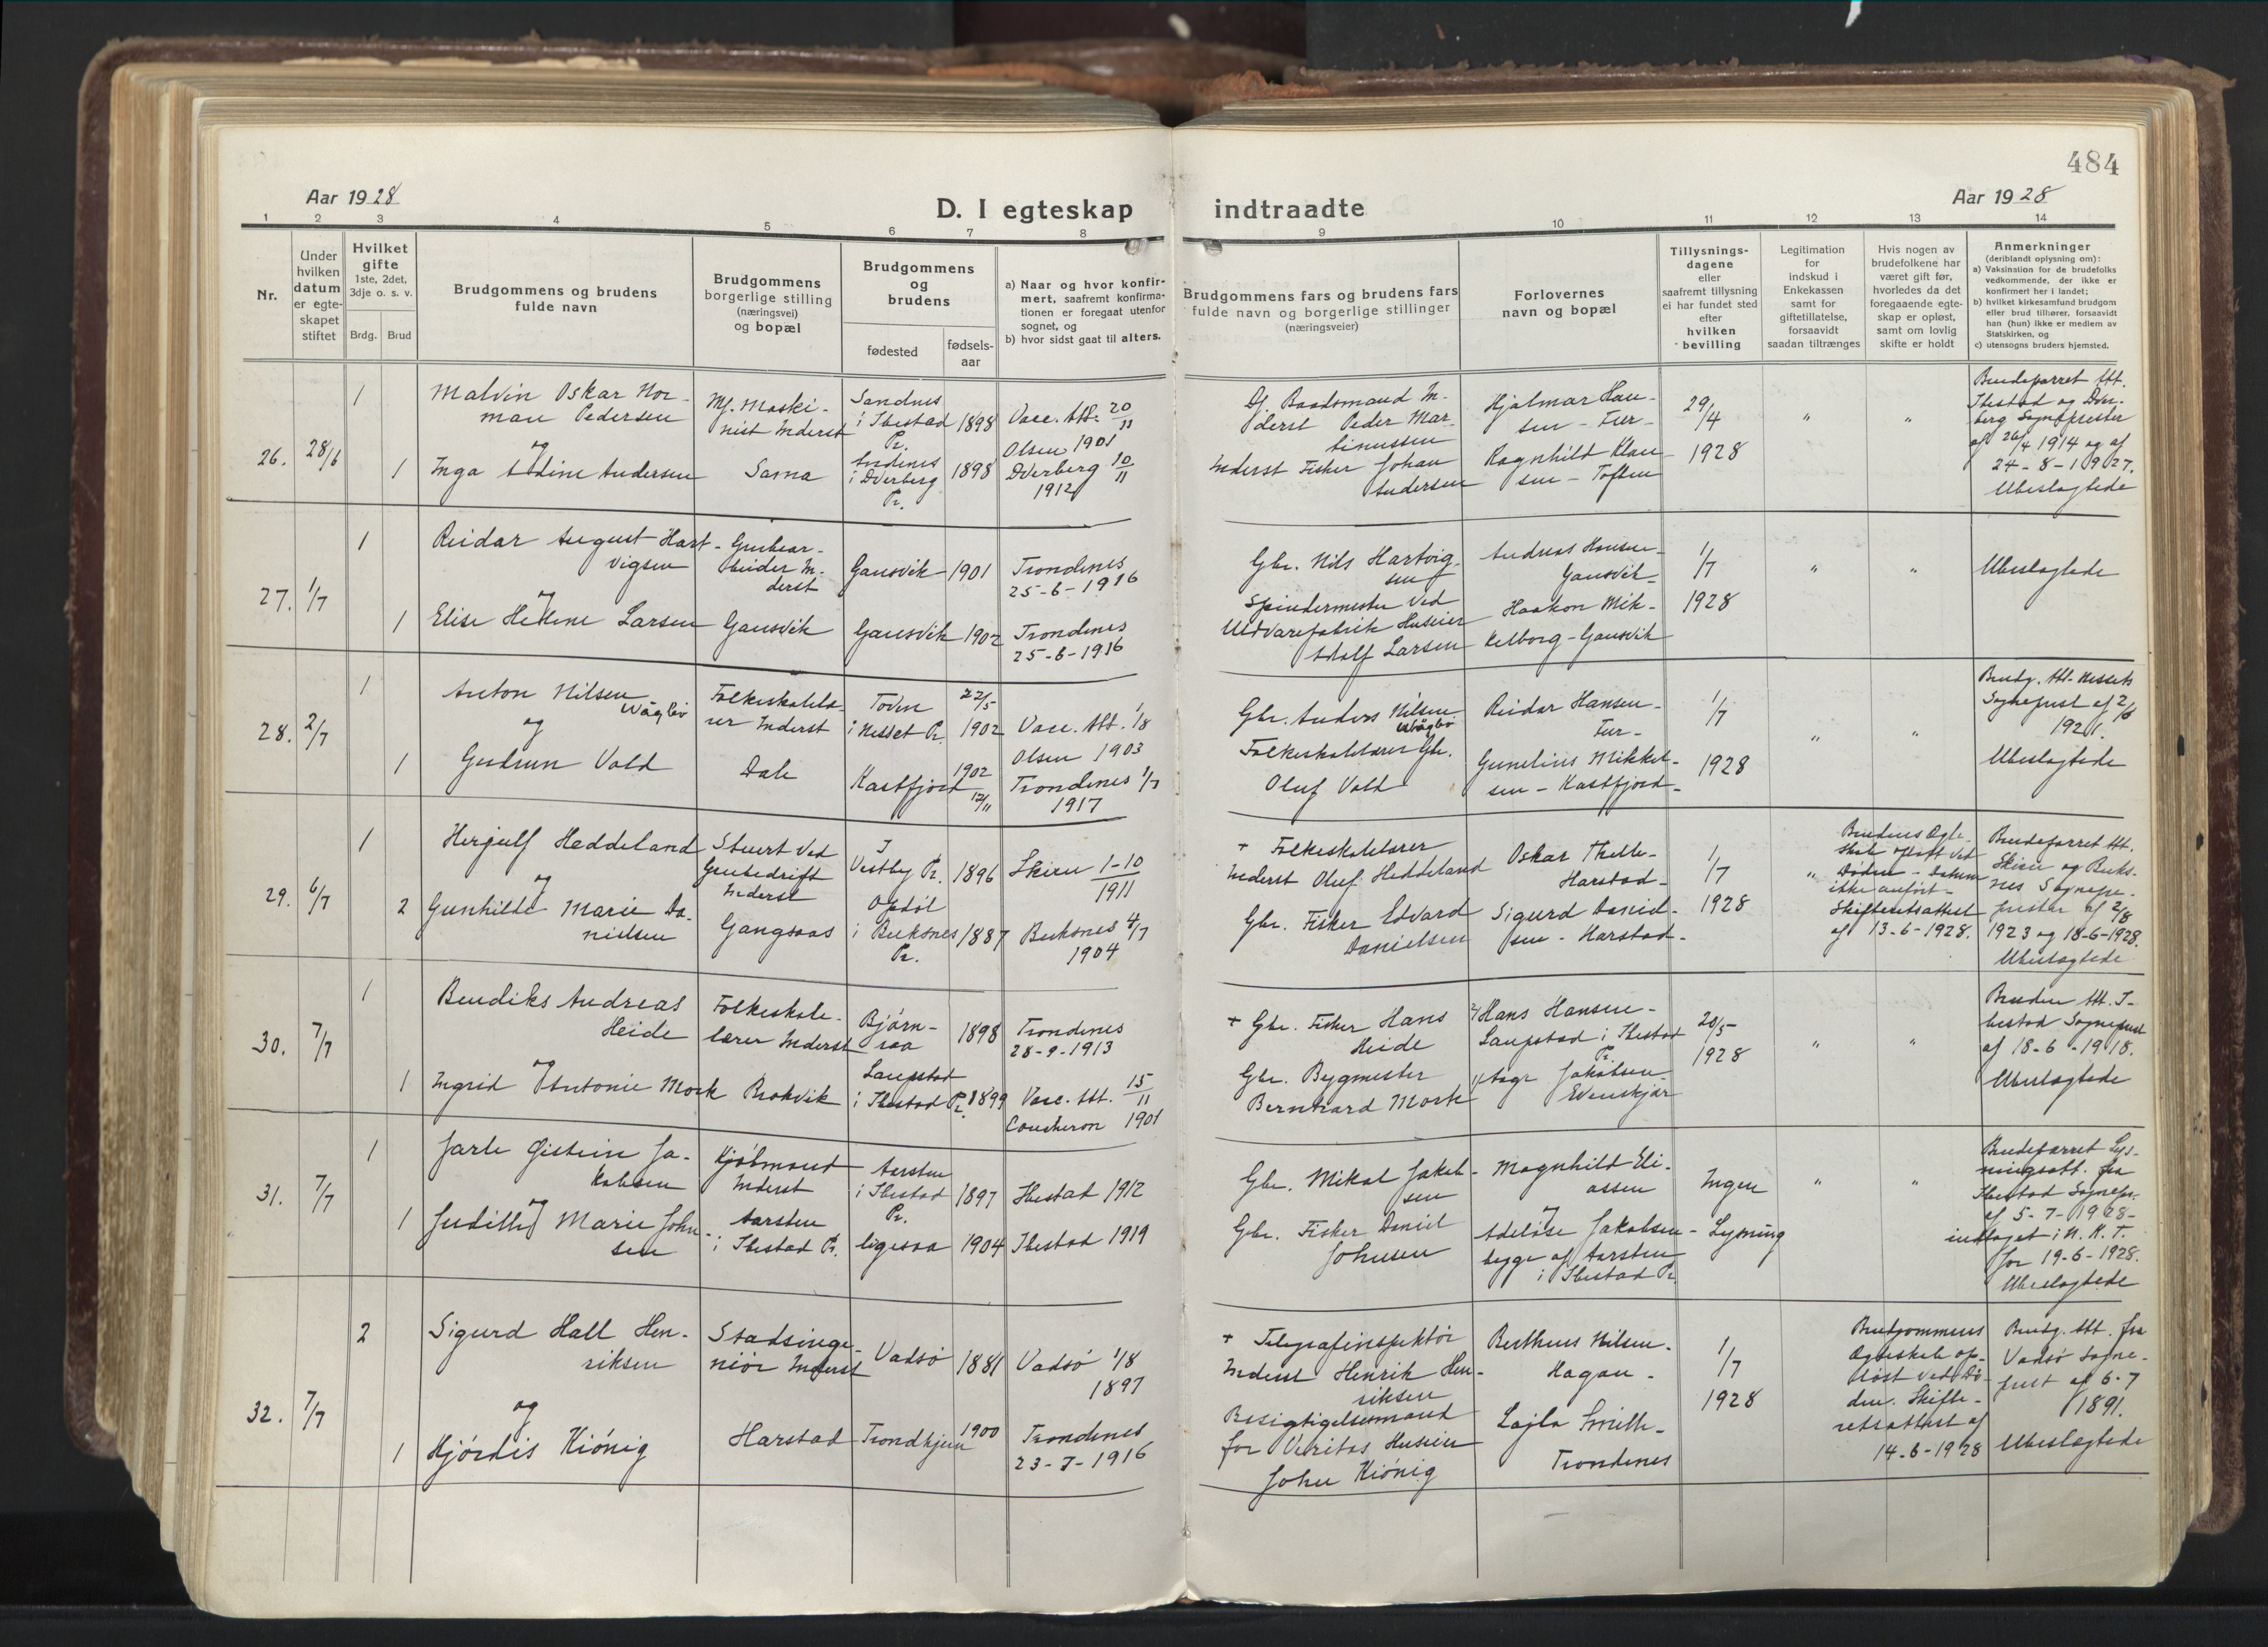 484
Aar 1928
D. I egteskap
indtraadte
Aar 1928
1 2 3 4 5 6 7 8
9 10 11 12 13 14
Nr.
Under
hvilken
datum
er egte-
skapet
stiftet
Hvilket
gifte
1ste, 2det,
3dje o. s. v.
Brdg. Brud
Brudgommens og brudens
fulde navn
Brudgommens
borgerlige stilling
(næringsvei)
og bopæl
Brudgommens
og
brudens
fødested
fødsels-
aar
a) Naar og hvor konfir-
mert, saafremt konfirma-
tionen er foregaat utenfor
sognet, og
b) hvor sidst gaat til alters.
Brudgommens fars og brudens fars
fulde navn og borgerlige stillinger
(næringsveier)
Forlovernes
navn og bopæl
Tillysnings-
dagene
eller
saafremt tillysning
ei har fundet sted
efter
hvilken
bevilling
Legitimation
for
indskud i
Enkekassen
samt for
giftetillatelse,
forsaavidt
saadan tiltrænges
Hvis nogen av
brudefolkene har
været gift før,
hvorledes da det
foregaaende egte-
skap er opløst,
samt om lovlig
skifte er holdt
Anmerkninger
(deriblandt oplysning om):
a) Vaksination for de brudefolks
vedkommende, der ikke er
konfirmert her i landet;
b) hvilket kirkesamfund brudgom
eller brud tilhører, forsaavidt
han (hun) ikke er medlem av
Statskirken, og
c) utensogns bruders hjemsted.
26.
28/6
1
Malvin Oskar Nor-
man Pedersen
og
1
Inga Adine Andersen
Mf. Maski-
nist Inderst
Sama
Sandnes
i Ibestad
Pr.
1898
Andenes
i Dverberg
Pr.
1898
Vacc. Att. 20/11
Olsen 1901
Dverberg 10/11
1912
Baadsmand In-
derst Peder Mar-
tinussen
Inderst Fisker Johan
Andersen
Hjalmar Han-
sen -
Ragnhild Klau-
sen - Toften
29/4
1928
"
"
Brudeparret Att.
Ibestad og Dver-
berg Sogneprester
af 26/4 1914 og af
24-8-1927.
Ubeslægtede
27.
1/7
1
Reidar August Hart-
vigsen
og
1
Elise Helene Larsen
Grubear-
beider In-
derst
Gansvik
Gansvik 1901
Gansvik 1902
Trondenes
25-6-1916
Trondenes
25-6-1916
Gbr. Nils Hartvig-
sen
Spindermester ved
Uldvarefabrik Huseier
Adolf Larsen
Andreas Hansen-
Gansvik-
Haakon Mik-
kelborg-Gansvik
1/7
1928
"
"
Ubeslægtede
28.
2/7
1
Anton Nilsen
Vågbø
og
1
Gudrun Vold
Folkeskolelæ-
rer Inderst
Dale
Toven
i Nesset Pr.
22/5
1902
Kastfjord
1902
12/11
Vacc. Att. 1/8
Olsen 1903
Trondenes 1/7
1917
Gbr. Anders Nilsen
Vågbø
Folkeskolelærer Gbr.
Oluf Vold
Reidar Hansen-
Gunelius Mikkel-
sen - Kastfjord-
1/7
1928
"
"
Brudg. Att. Nessets
Sogneprest af
1921.
Ubeslægtede
29.
6/7
1
Herjulf Heddeland
og
2
Gunhilde Marie Da-
nielsen
Stuert ved
Grubedrift
Inderst
Gangsaas
I
Vestby Pr. 1896
Opdøl
i Buksnes 1887
Pr.
Skien 1-10
1911
Buksnes 4/7
1904
+ Folkeskolelærer
Inderst Oluf Heddeland
Gbr. Fisker Edvard
Danielsen
Oskar Thelle-
Harstad-
Sigurd Daniel-
sen - Harstad-
1/7
1928
"
Brudens Egte-
skab opløst ved
Døden - Datum
ikke anført -
Skifteretsattest
af 13-6-1928.
Brudeparret Att.
Skien og Buks-
nes Sognepr-
prester af 2/8
1923 og 18-6-1928.
Ubeslægtede
30.
7/7
1
Bendiks Andreas
Heide
og
1
Ingrid Antonie Mork
Folkeskole-
lærer Inderst
Brokvik
Bjørn-
raa
1898
Laupstad
i Ibestad Pr. 1899
Trondenes
28-9-1913
Vacc. Att. 15/11
Coucheron 1901
+ Gbr. Fisker Hans
Heide
Gbr. Bygmester
Berntzard Mork
Hans Hansen-
Laupstad i Ibestad
Pr.
Aage Jakobsen
Evenskjær
20/5-
1928
"
"
Bruden Att. I-
bestad Sogneprest
af 18-6-1918.
Ubeslægtede
31.
7/7
1
Jarle Øistein Ja-
kobsen
og
1
Judith Marie John-
sen
Kjøbmand
Inderst
Aarsten
i Ibestad Pr.
Aarsten
i Ibestad
Pr.
1897
ligesaa 1904
Ibestad 1912
Ibestad 1919
Gbr. Mikal Jakob-
sen
Gbr. Fisker Daniel
Johnsen
Magnhild Eli-
assen
og
Adeløse Jakobsen -
begge af Aarsten
i Ibestad Pr.
Ingen
Lysning
"
"
Brudeparret Lys-
ningsatt. fra
Ibestad Sognepr.
af 5-7-1928-
indtaget i N. K. T.
for 19-6-1928.
Ubeslægtede
32.
7/7
2
Sigurd Hall Hen-
riksen
og
1
Hjørdis Kiønig
Stadsinge-
niør Inderst
Harstad
Vadsø 1881
Trondhjem 1900
Vadsø 1/8
1897
Trondenes
23-7-1916
+ Telegrafinspektør
Inderst Henrik Hen-
riksen
Besigtigelsesmand
for Veritas Huseier
John Kiønig
Bertheus Nilsen-
Hagan -
Lajla Smith-
Trondenes
1/7
1928
Brudgommens
Egteskab op-
løst ved Dø-
den. Skifte-
retsattest af
14-6-1928
Brudg. Att. fra
Vadsø Sogne-
prest af 6-7
1891.
Ubeslægtede